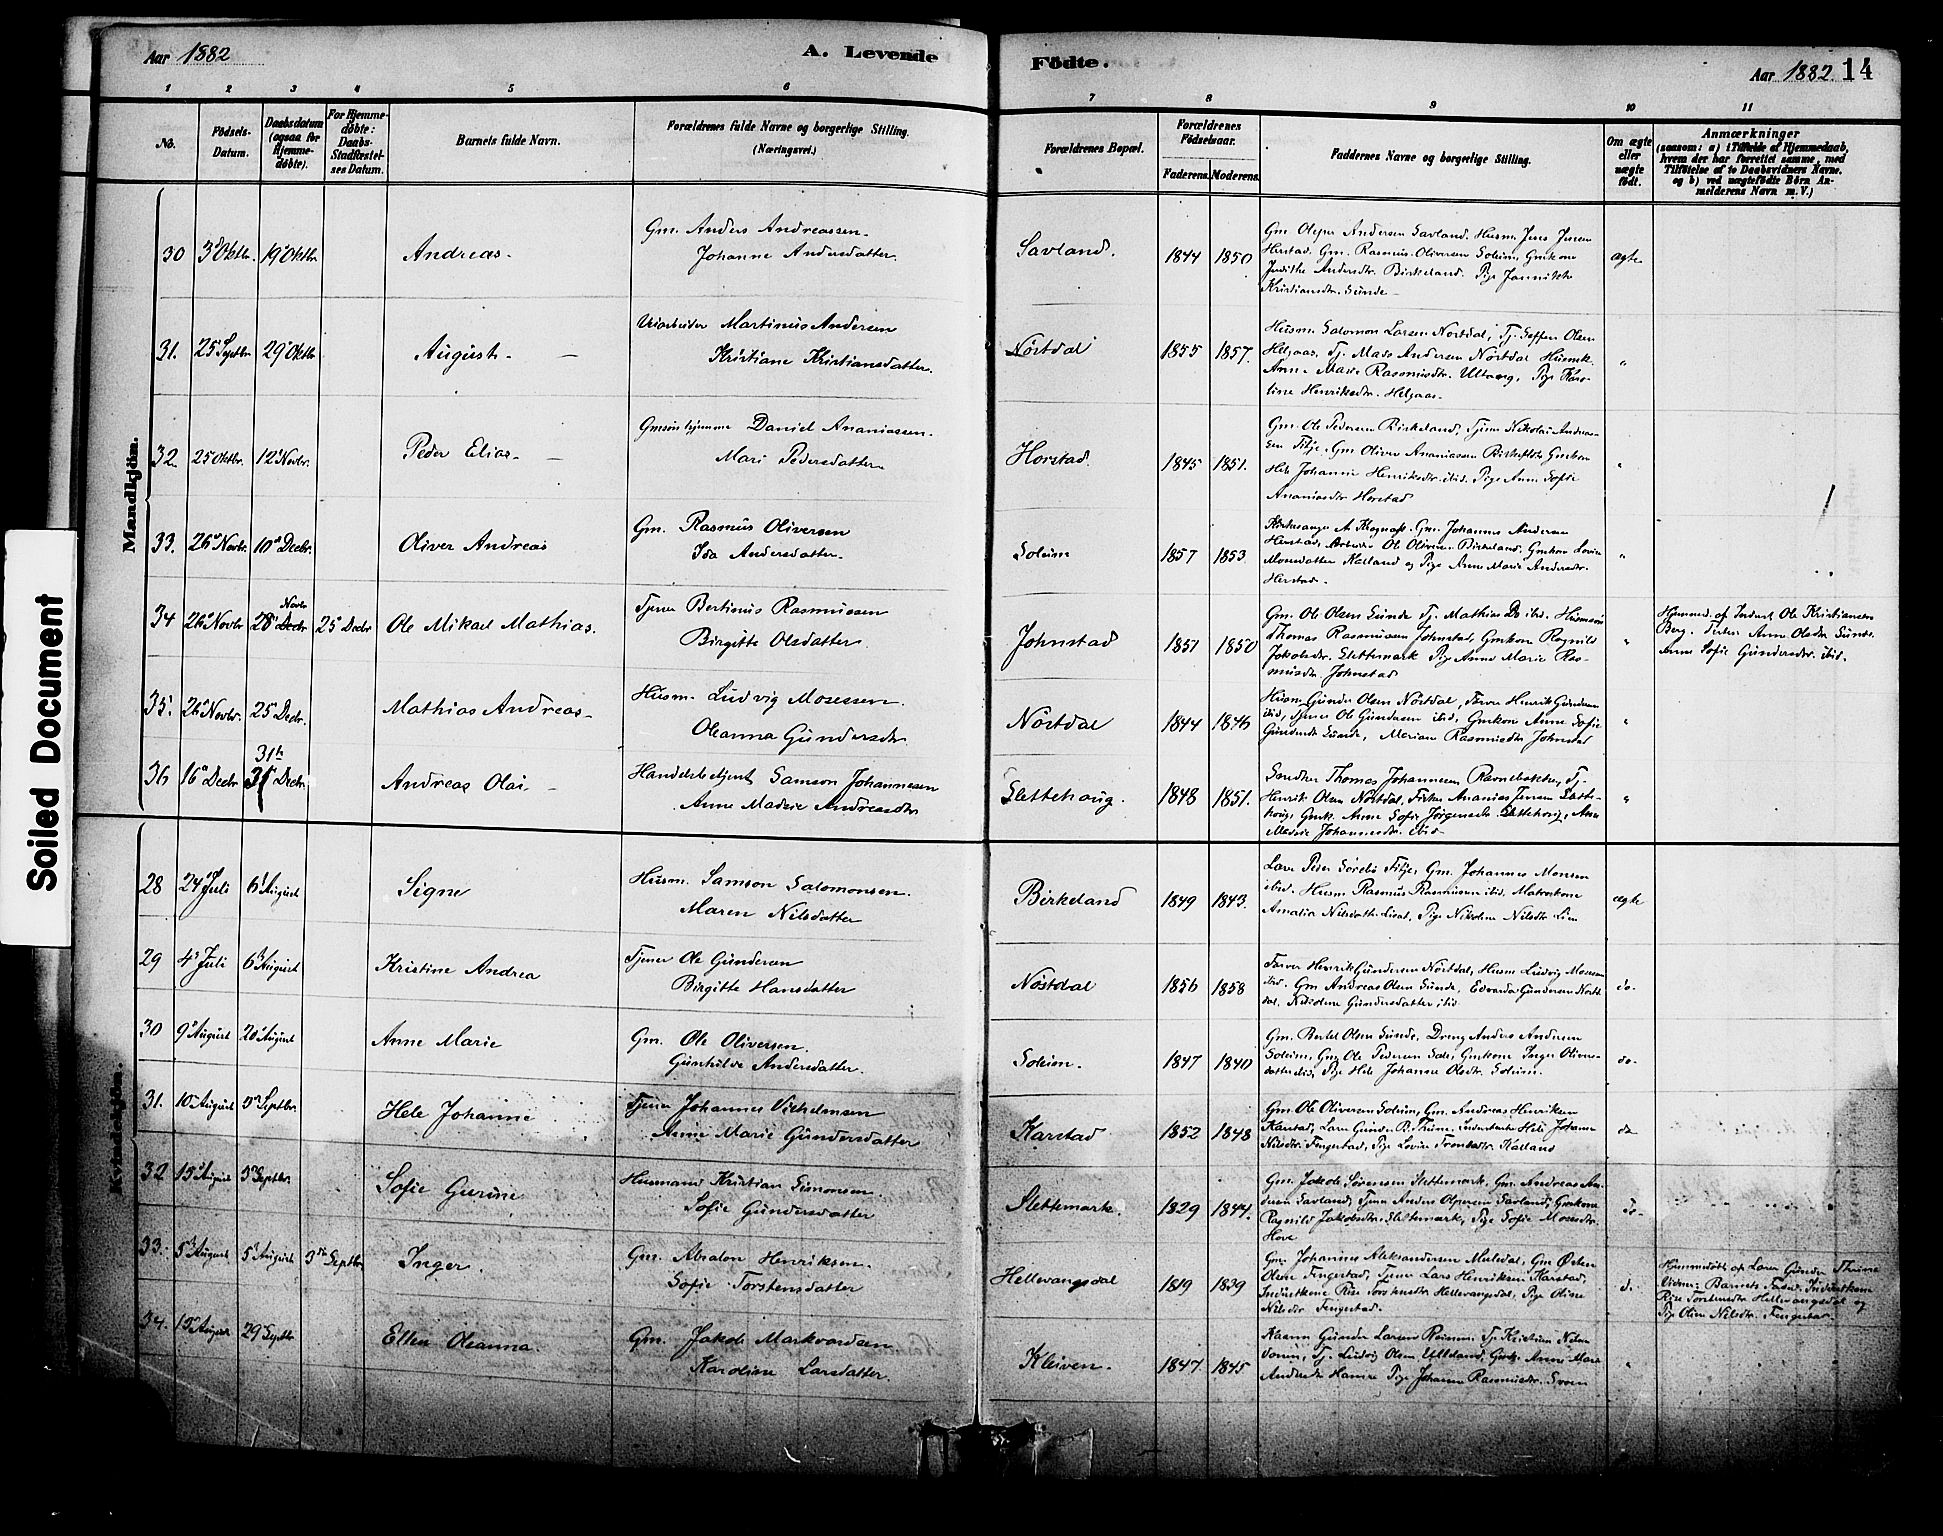 Aar 1882
A. Levende
Födte.
Aar 1882.
14
1 2 3 4 5 6 7 8 9 10 11
No.
Födsels-
Datum.
Daabsdatum
(ogsaa for
Hjemme-
döbte).
For Hjemme-
döbte:
Daabs-
Stadfæstel-
ses Datum.
Barnets fulde Navn.
Forældrenes fulde Navne og borgerlige Stilling.
(Næringsvei.)
Forældrenes Bopæl.
Forældrenes
Födselsaar.
Faderens. Moderens.
Faddernes Navne og borgerlige Stilling.
Om ægte
eller
uægte
födt.
Anmærkninger
(saasom: a) i Tilfælde af Hjemmedaab,
hvem der har forrettet samme, med
Tilföielse af to Daabsvidners Navne,
og b) ved uægtefödte Börn An-
melderens Navn m. V.)
Mandkjön.
30 3 Oktbr. 19 Oktbr. Andreas.
Gm. Anders Andreassen.
Johanne Andersdatter.
Savland. 1844 1850
Gm. Andersen Savland. Husm. Jens Jensen
Herstad. Gm. Rasmus Oliversen Soleim, Gmkone
Judithe Andersdtr. Birkeland. Pige Jannikke
Kristiansdtr. Sunde
ægte
31. 25 Septbr. 29 Oktbr. August.
Martinus Andersen
Kristiane Kristiansdatter.
Nöstdal 1855 1857.
Husm. Salomon Larsen Nöstdal, Tj. Steffen Olsen
Helgaas. Tj. Mads Andersen Nöstdal Husmk.
Anne Marie Rasmusdtr. Ultvang, Pige Karo-
line Henriksdtr. Helgaas.
"
32. 25 Oktbr. 12 Novbr. Peder Elias.
Daniel Ananiassen.
Mari Pedersdatter
Horstad. 1845 1851.
Gm. Ole Pedersen Birkeland, Tjener Nikolai Andreas-
sen Gm. Oliver Ananiassen Gmkone
Hele Johanne Henriksdtr. ibid. Pige Anne Sofie
Ananiasdtr Horstad
"
33. 26 Novbr. 10 Decbr. Oliver Andreas
Gm. Rasmus Oliversen
Ida Andersdatter.
Soleim 1857 1853
Kirkesanger A. Gm. Johannes Andersen
Herstad, Arbeider Ole Birkeland. Gmkone Lovise
Monsdatter Kalland og Pige Anne Marie Andersdtr.
Herstad.
"
34 26 Novbr. Novbr 28 Decbr 25 Decbr Ole Mikael Mathias.
Tjener Bertinus Rasmussen
Birgitte Olsdatter.
Johnstad 1851 1850
Gm. Ole Olsen Sunde Tj. Mathias Do ibid. Husmand
Thomas Rasmussen Johnstad, Gmkone Ragnild
Jakobsdtr. Slettemark Pige Anne Marie Ras-
musdtr Johnstad
"
Hjemmed. af Inderst Ole Kristiansen
Berg. Anne Olsdtr Sunde.
Anne Sofie Gundersdtr. ibid.
35. 26 Novbr. 25 Decbr. Mathias Andreas.
Husm. Ludvig Mosessen.
Oleanna Gundersdtr.
Nöstdal 1844 1846
Husm. Gunder Olsen Nöstdal, Farver Henrik Gundersen
ibid, Tjener Ole Gundersen ibid, Gmkone Anne Sofie
Sunde, Mariane Rasmusdtr Johnstad
"
36 16 Decbr 31te 31 Decbr. Andreas Olai
Handelsbetjent Samson Johannessen
Anne Maderie Andreasdtr
Slettehaug. 1848 1851.
Thomas Johannesen Tj.
Henrik Olsen Nöstdal, Ananias Jensen Slette-
haug, Gmk. Anne Sofie Jörgensdtr Slettehaug, Anne
Maderie Johannesdtr. ibid
"
Kvindekjön.
28 24 Juli 6 August Signe
Husm. Samson Salomonsen.
Maren Nilsdatter
Birkeland 1849 1843.
Peder Gm. Johannes Monsen
ibid. Husm. Rasmus Rasmussen ibid.
Amalia Pige Nikoline Nilsdtr Lien
ægte
29 4 Juli 6 August Kristine Andrea
Tjener Ole Gundersen
Birgitte Hansdatter
Nöstdal 1856 1858
Farver Henrik Gundersen Nöstdal, Husm Ludvig Monsen
ibid. Gm Andreas Olsen Sunde, Edvarda Gundersen Nöst-
dal, Nikoline Gundersdatter ibid
do.
30 9 August 20 August Anne Marie
Gm. Ole Oliversen.
Gunhilde Andersdatter.
Soleim. 1847 1840
Gm. Bertel Olsen Sunde, Dreng Anders Andersen
Soleim, Gm Ole Pedersen Sole, Gmkone Inger Olivers-
datter ibid, Pige Hele Johanne Olsdtr. Soleim.
do.
31. 10 August 3 Septbr. Hele Johanne
Tjener Johannes Vilhelmsen
Anne Marie Gundersdatter
Karstad 1852 1848
Gm. Ole Oliversen Soleim, Gm. Andreas Henriksen
Karstad, Lars Gunder R. Thune, Hele Johanne
Nilsdtr. Fengestad, Pige Lovise Kalland
do
32 15 August 3 Septbr. Sofie Gurine
Husmand Kristian Simonsen.
Sofie Gundersdatter
Slettemark. 1829 1844.
Gm. Jakob Sörensen Slettemark, Gm. Andreas An-
dersen Savland, Tjener Anders Savland, Gmkone
Ragnild Jakobsdtr. Slettemark, Pige Sofie Mosesdtr.
Hove
do.
33. 5 August 5 August 3die Septbr. Inger.
Gm. Absalon Henriksen.
Sofie Torstensdatter
Hellevangsdal 1819 1839
Gm. Johannes Aleksandersen Gm Østen
Olsen Fengestad, Tjener Lars Henriksen Karstad,
Torstensdtr Hellevangsdal, Pige Oline
Nilsdtr Fengestad.
d.
Hjemmedöbt af Gunder Thune
Vidner: Barnets Fader,
Torstensdtr Hellevangsdal og
Pige Oline Nilsdtr. Fengestad.
34. 15 August 29 Septbr Ellen Oleanna.
Gm. Jakob Markvardsen
Karoline Larsdatter.
Kleiven. 1847 1845
Gunder Larsen Tj Kristian
Tj. Ludvig Olsen Anne Marie
Pige Johanne Rasmusdtr.
"
Soiled Document